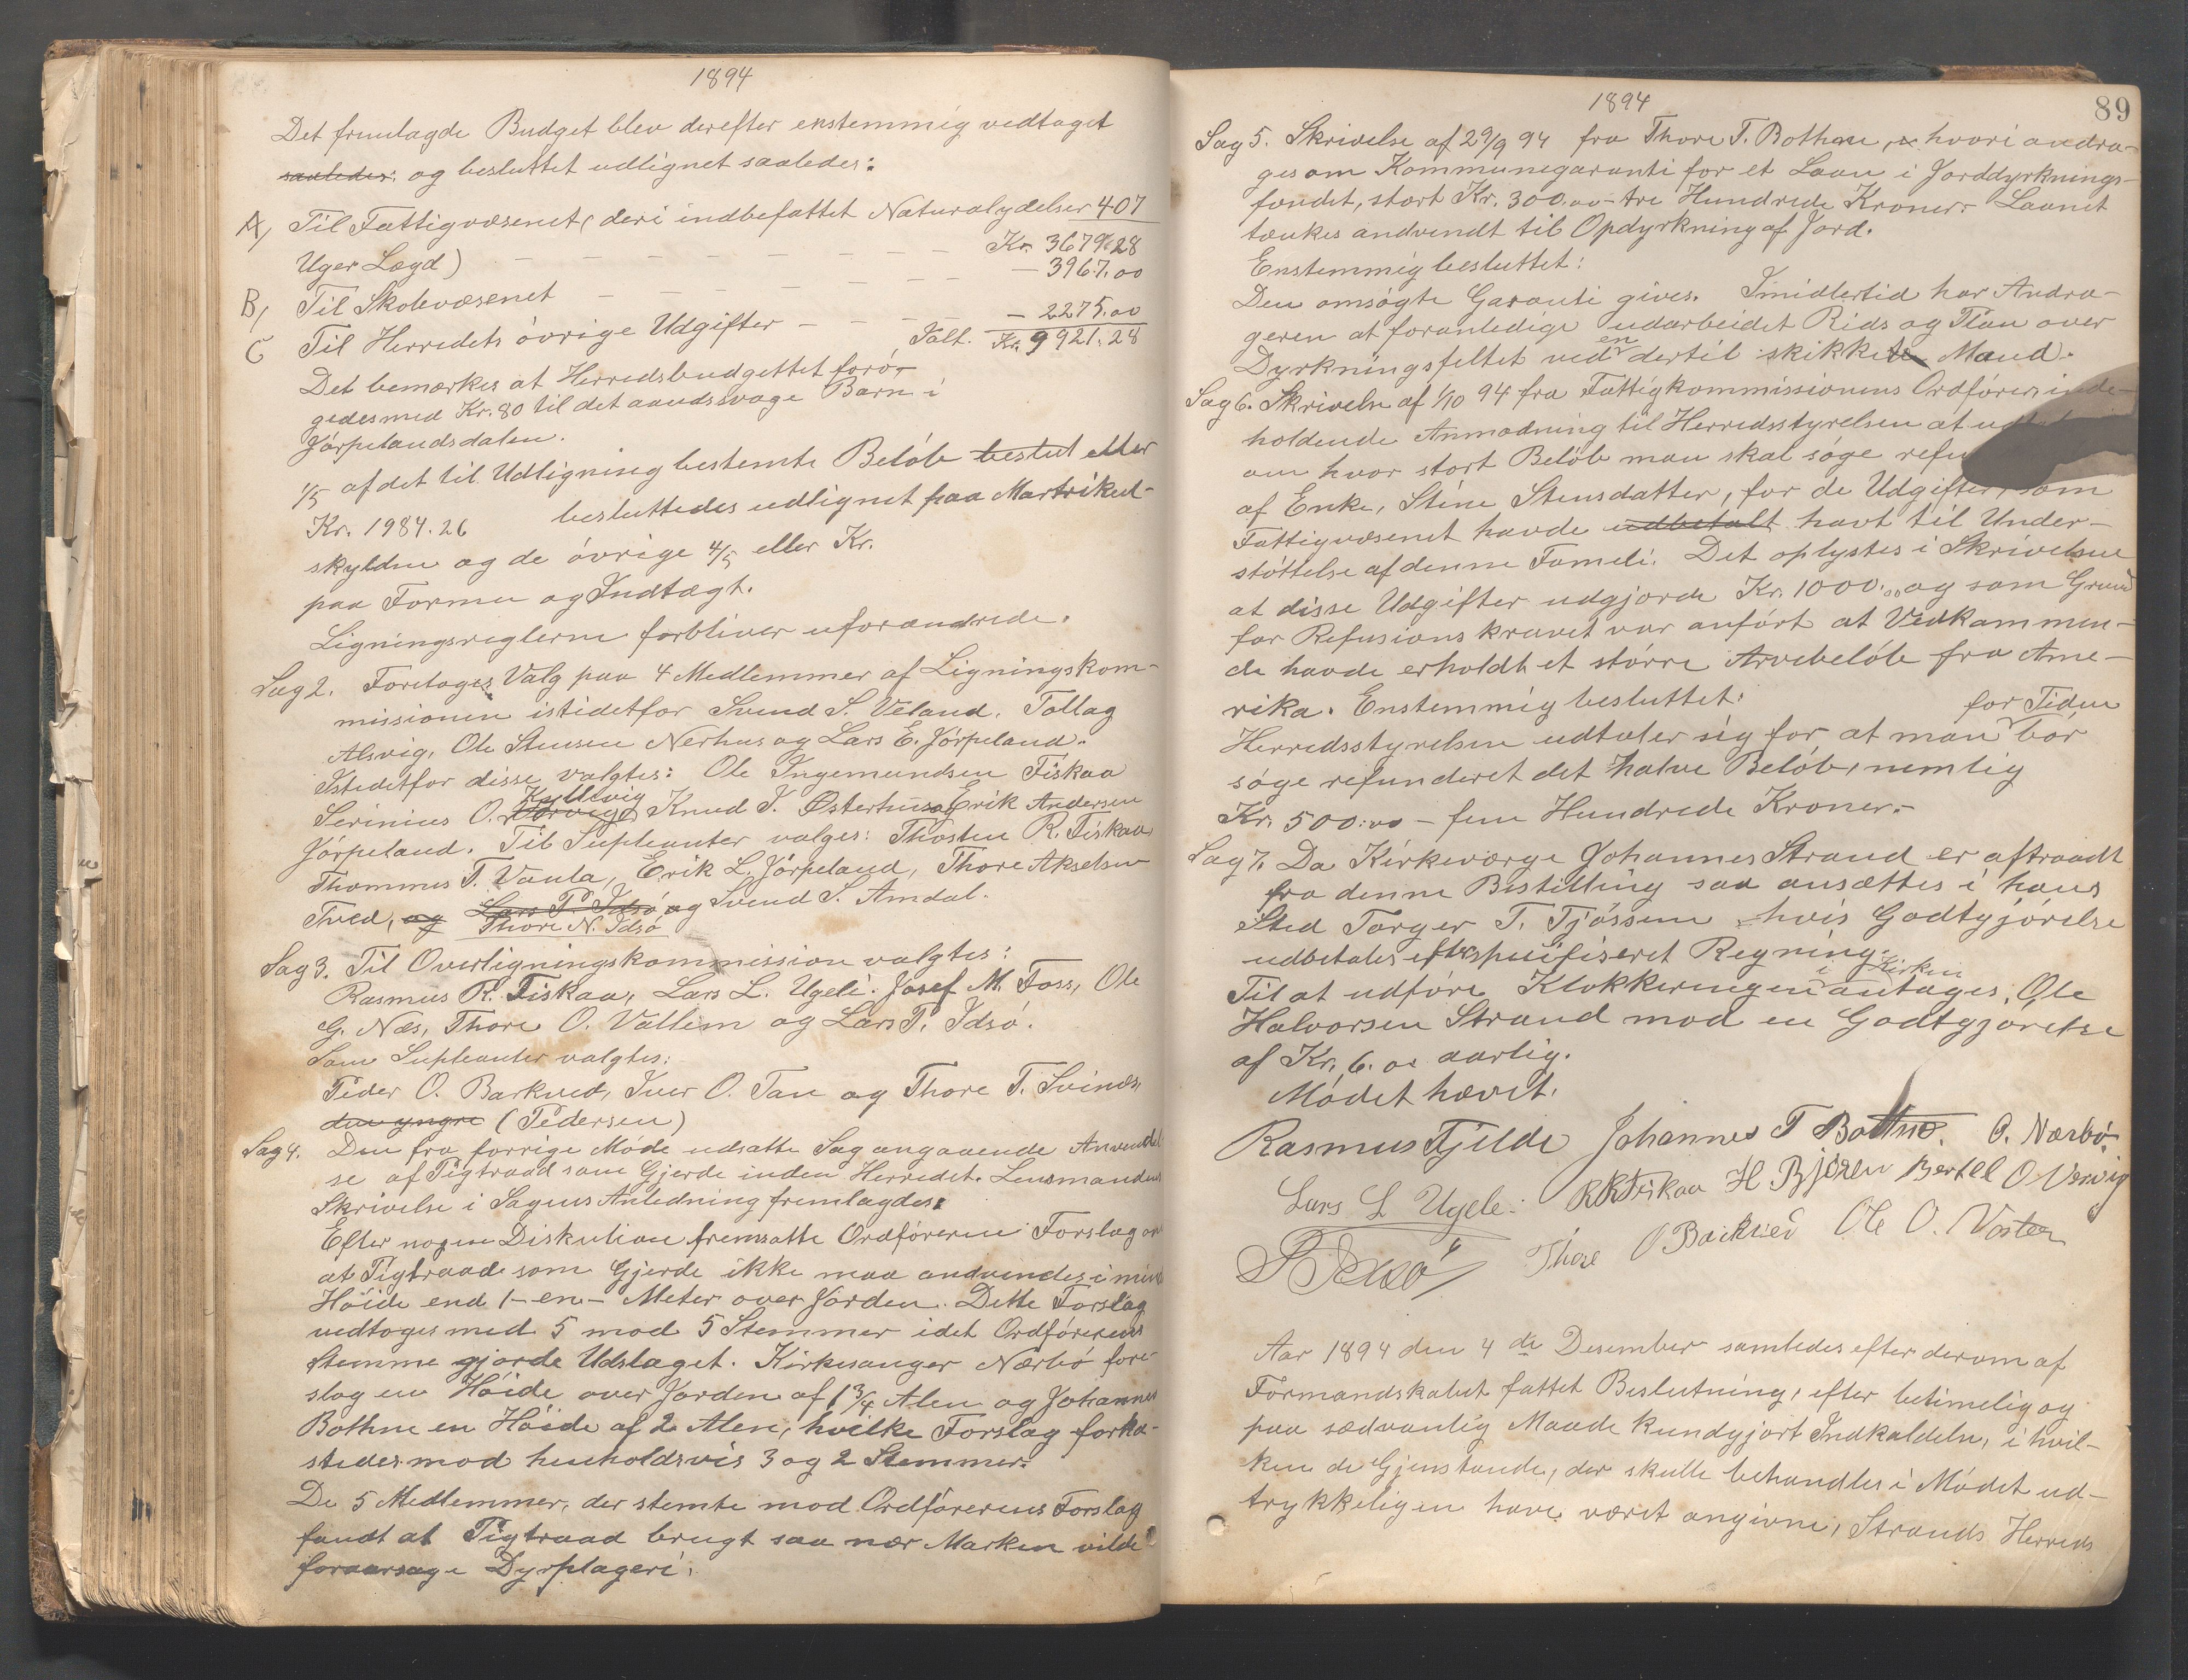 1894
Det fremlagde Budget blev derefter enstemmig vedtaget
saaledes: og besluttet udlignet saaledes:
A, Til Fattigvæsenet, (deri indbefattet Naturalydelser 407
Uger Lægd) – – – – – – – Kr. 3679.28
B, Til Skolevæsenet – – – – – – – 3967.00
C Til Herredets øvrige Udgifter – – – – – 2275.00
Ialt. Kr. 9921.28
Det bemærkes at Herredsbudgettet forø-
gedes med Kr. 80 til det aandssvage Barn i
Jørpelandsdalen.
1/5 af det til Udligning bestemte Beløb beslut eller
Kr. 1984.26 besluttedes udlignet paa Martrikul-
skylden og de øvrige 4/5 eller Kr.
paa Formue og Indtægt.
Ligningsreglerne forbliver uforandrede.
Sag 2. Foretoges Valg paa 4 Medlemmer af Ligningskom-
missionen istedetfor Svend S. Veland, Tollag
Alsvig, Ole Stensen Nerhus og Lars E. Jørpeland.
Istedetfor disse valgtes: Ole Ingemundsen Fiskaa
Kyllevig
Serinius O. Knud T. Østerhus og Erik Andersen
Jørpeland. Til Supleanter valges: Thosten R. Fiskaa,
Thommes T. Vaula, Erik L. Jørpeland, Thore Akselsen
Tved, og Lars P. Idsø og Svend S. Amdal.
Thore N. Idsø
Sag 3. Til Overligningskommission valgtes:
Rasmus R. Fiskaa, Lars L. Ugeli. Josef M. Foss, Ole
G. Næs, Thore O. Vallem og Lars P. Idsø.
Som Supleanter valgtes:
Peder O. Barkved, Iver O. Tau og Thore T. Svines,
den yngre (Pedersen)
Sag 4. Den fra forrige Møde udsatte Sag angaaende Anvendel-
se af Pigtraad som Gjerde inden Herredet. Lensmandens
Skrivelse i Sagens Anledning fremlagdes.
Efter nogen Diskution fremsatte Ordføreren Forslag om
at Pigtraade som Gjerde ikke maa andvendes i mindre
Høide end 1 – en – Meter over Jorden. Dette Forslag
vedtoges med 5 mod 5 Stemmer idet Ordførerens
Stemme gjorde Udslaget. Kirkesanger Nærbø fore-
slog en Høide over Jorden af 1 3/4 Alen og Johannes
Bothne en Høide af 2 Alen, hvilke Forslag forka-
stedes mod henholdsvis 3 og 2 Stemmer.
De 5 Medlemmer, der stemte mod Ordførerens Forslag
fandt at Pigtraad brugt saa nær Marken vilde
foraarsage Dyrplageri.
1894
89
Sag 5. Skrivelse af 29/9 94 fra Thore T. Bothne, hvori andra-
ges om Kommunegaranti for et Laan i Jorddyrknings-
fondet, stort Kr. 300.00 – tre Hundrede Kroner. – Laanet
tænkes andvendt til Opdyrkning af Jord.
Enstemmig besluttet:
Den omsøgte Garanti gives. Imidlertid har Andra-
geren at foranledige udarbeidet Rids og Plan over
en
Dyrkningsfeltet ved dertil skikket Mand.
Sag 6. Skrivelse af 1/10 94 fra Fattigkommissionens Ordfører, inde-
holdende Anmodning til Herredsstyrelsen at
om hvor stort Beløb man skal søge
af Enke, Stine Stensdatter, for de Udgifter, som
Fattigvæsenet havde udbetalt havt til Under-
støttelse af denne Fameli. Det oplystes i Skrivelsen
at disse Udgifter udgjorde Kr. 1000.00 og som Grund
for Refusionskravet var anført at Vedkommen-
de havde erholdt et større Arvebeløb fra Ame-
rika. Enstemmig besluttet:
for Tiden
Herredsstyrelsen udtaler sig for at man bør
søge refunderet det halve Beløb, nemlig
Kr. 500.00 – fem Hundrede Kroner. –
Sag 7. Da Kirkeværge Johannes Strand er aftraadt
fra denne Bestilling saa ansættes i hans
Sted Torger T. Tjøssem hvis Godtgjørelse
udbetales efter spesifiseret Regning.
i Kirken
Til at udføre Klokkeringen antages, Ole
Halvorsen Strand mod en Godtgjørelse
af Kr. 6.00 aarlig.
Mødet hævet.
Rasmus Fjelde Johannes T Bothne. O. Nærbø
Lars L Ugele. R R Fiskaa H Bjøren Bertel O Vervig
Thore O Barkved Ole O. Voster
Aar 1894 den 4de Desember samledes efter derom af
Formandskabet fattet Beslutning, efter betimelig og
paa sædvanlig Maade kundgjort Indkaldelse, i hvil-
ken de Gjenstande, der skulle behandles i Mødet ud-
trykkeligen have været angivne, Strands Herreds